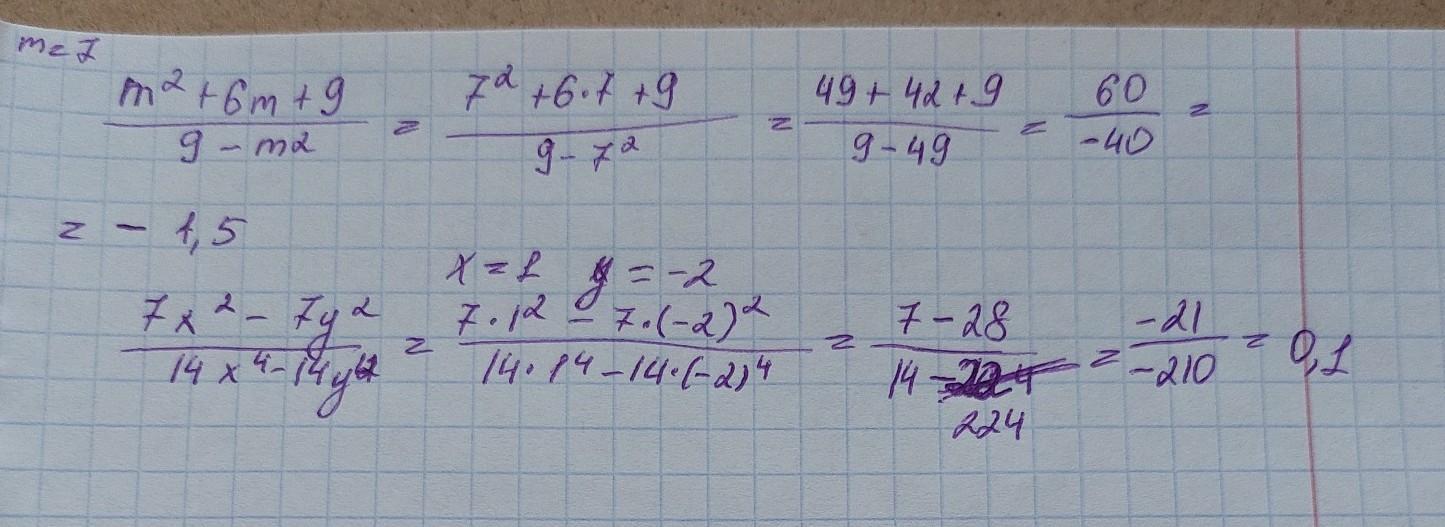 m=7
m²+6m+9/9-m² = 7²+6·7+9/9-7² = 49+42+9/9-49 = 60/-40 =
= - 1,5
x=1 y=-2
7x²-7y²/14x⁴-14y⁴ = 7·1²-7·(-2)²/14·1⁴-14·(-2)⁴ = 7-28/14-224 = -21/-210 = 0,1